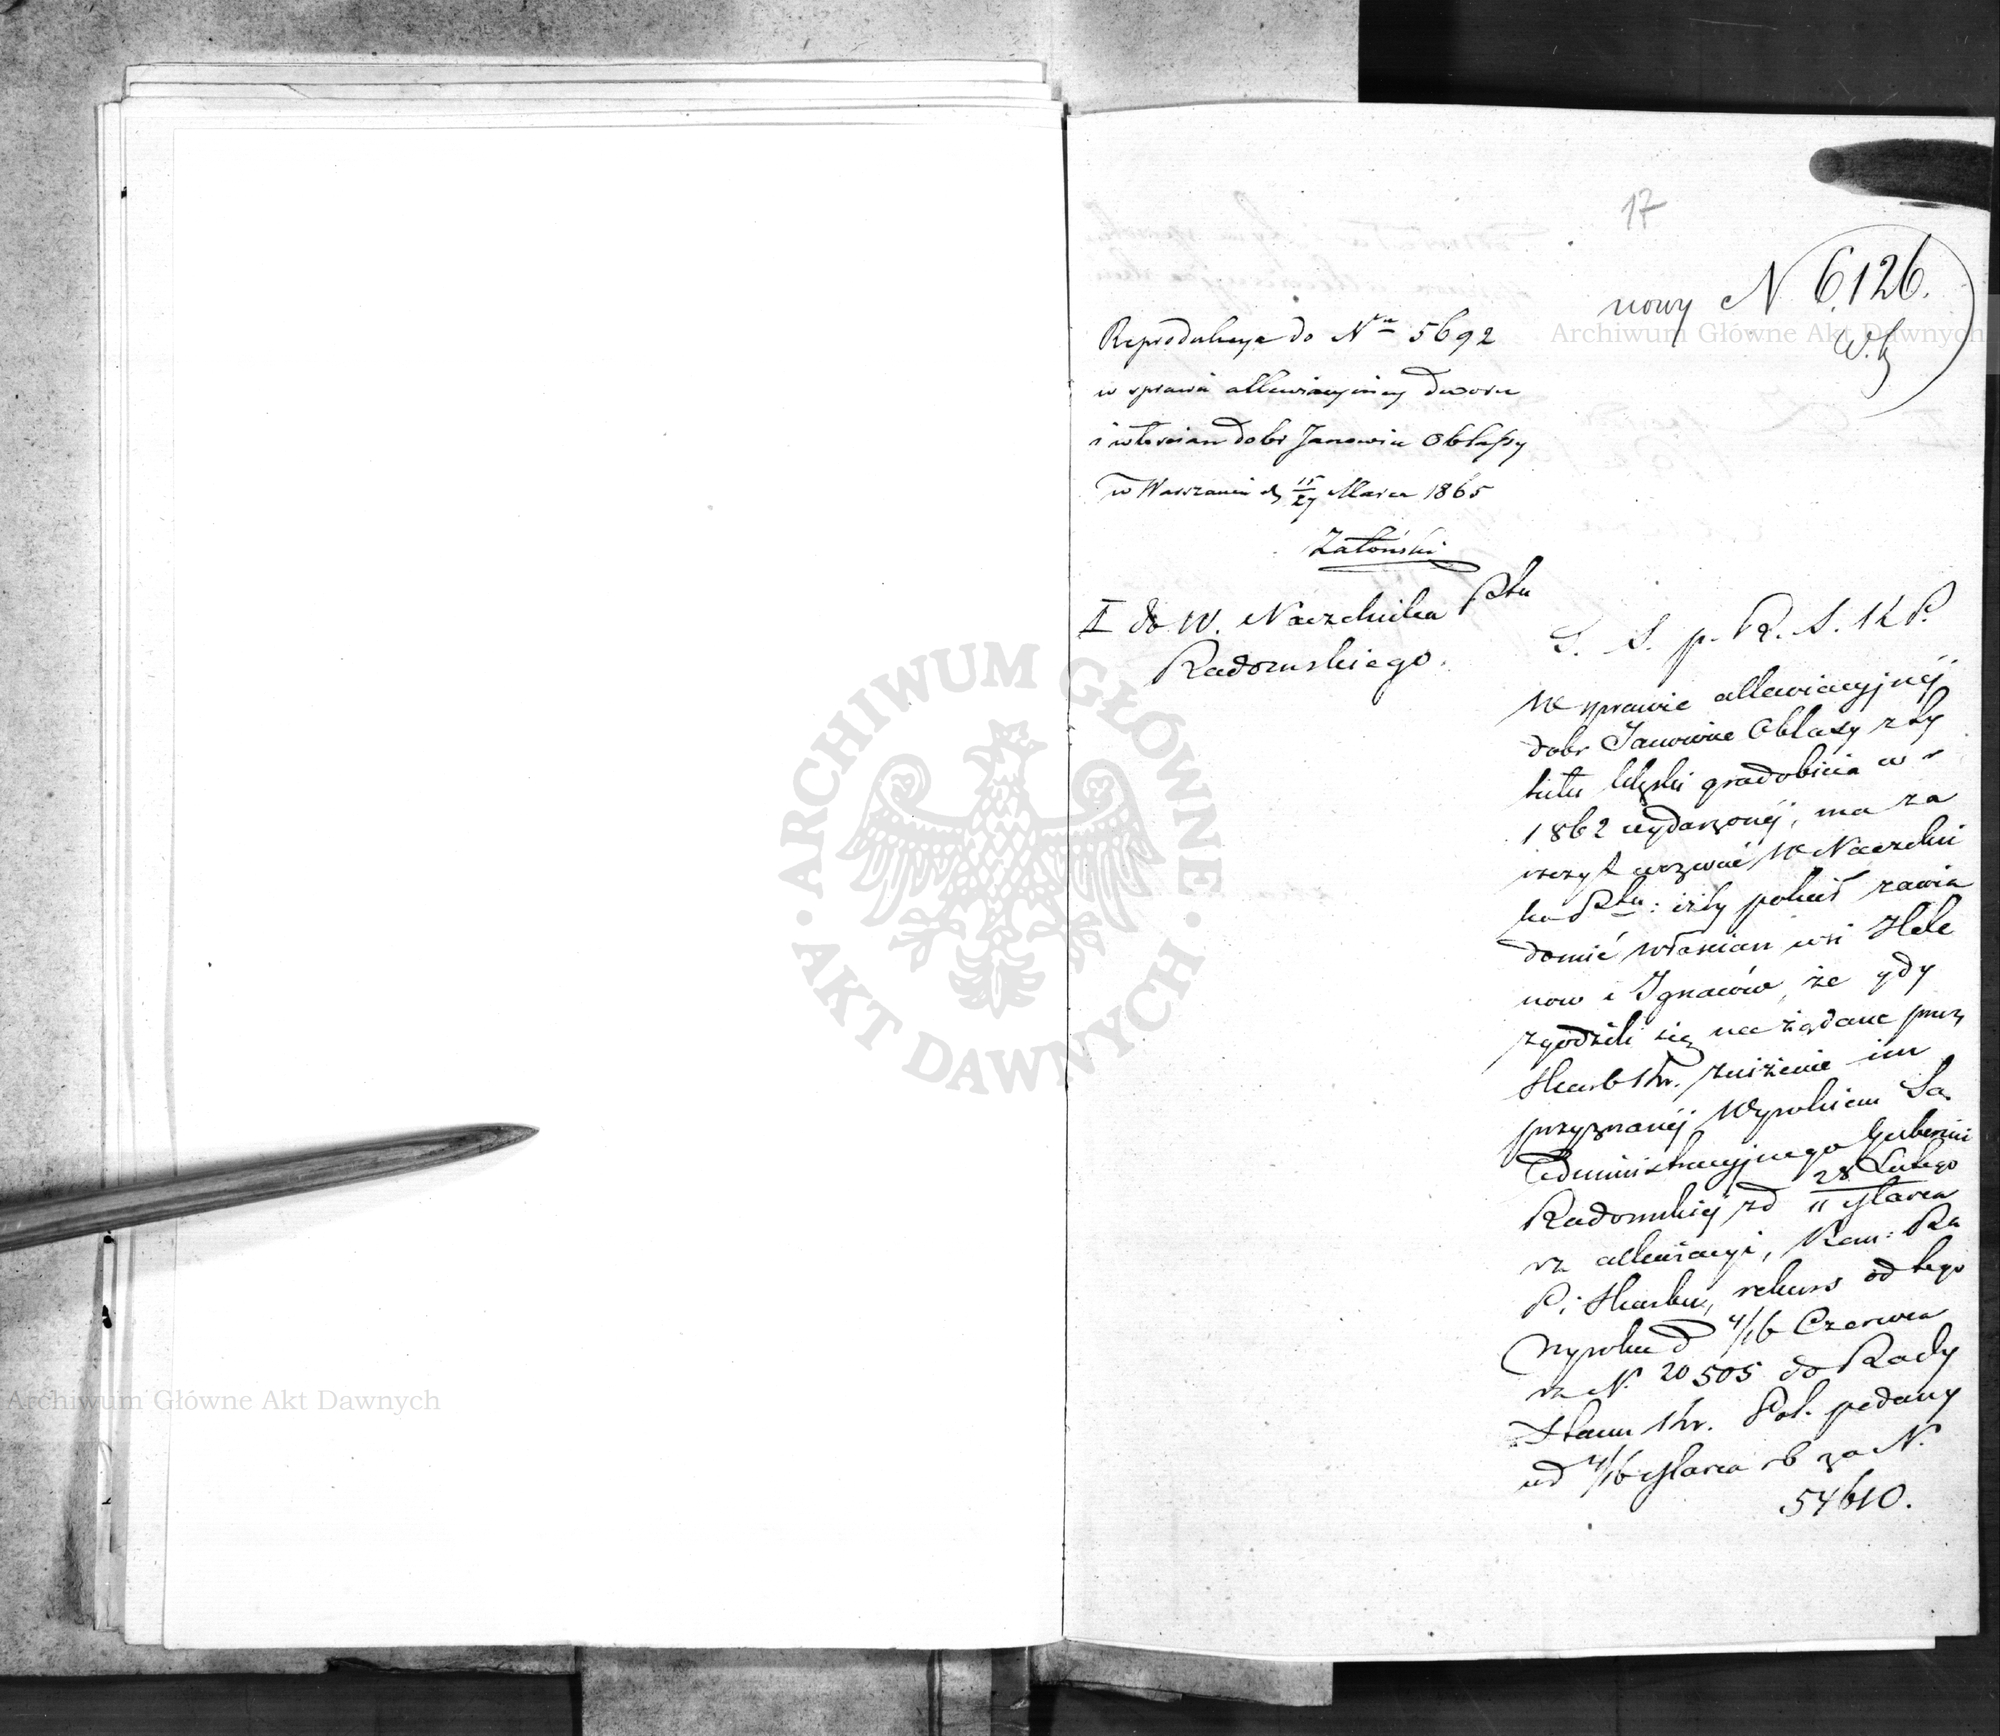 17
nowy N 6126.
W.
Reprodukcya do Nru 5692
w sprawie allewiacyjnej dworu
i włościan dobr Janowiec Obłasy
w Warszawie d 15/27 Marca 1865
Zatoński
II do W. Naczelnika Ptu
Radomskiego.
S. S. p. R. S. K P.
W sprawie allewiacyjnéj
dobr Janowiec Obłasy z ty
tułu klęski gradobicia w r
1862 wydarzonéj, ma za
szczyt wezwać W Naczelni
ka Ptu: iżby polecił zawia
domić włościan wsi Hele
now i Ignaców, że gdy
zgodzili się na żądane przez
Skarb Kr. zniżenie im
przyznanéj Wyrokiem Są
Administracyjnego Gubernii
Radomskiéj z d 28 Lutego / 11 Marca
rz allewiacyi, Kom: Rz
P. i Skarbu, rekurs od tego
Wyroku d 4/16 Czerwca
rz N. 20505 do Rady
Stanu Kr. Pol. podany
ud 4/16 Marca rb za N.
54610.
Archiwum Główne Akt Dawnych
Archiwum Główne Akt Dawnych
ARCHIWUM GŁÓWNE AKT DAWNYCH